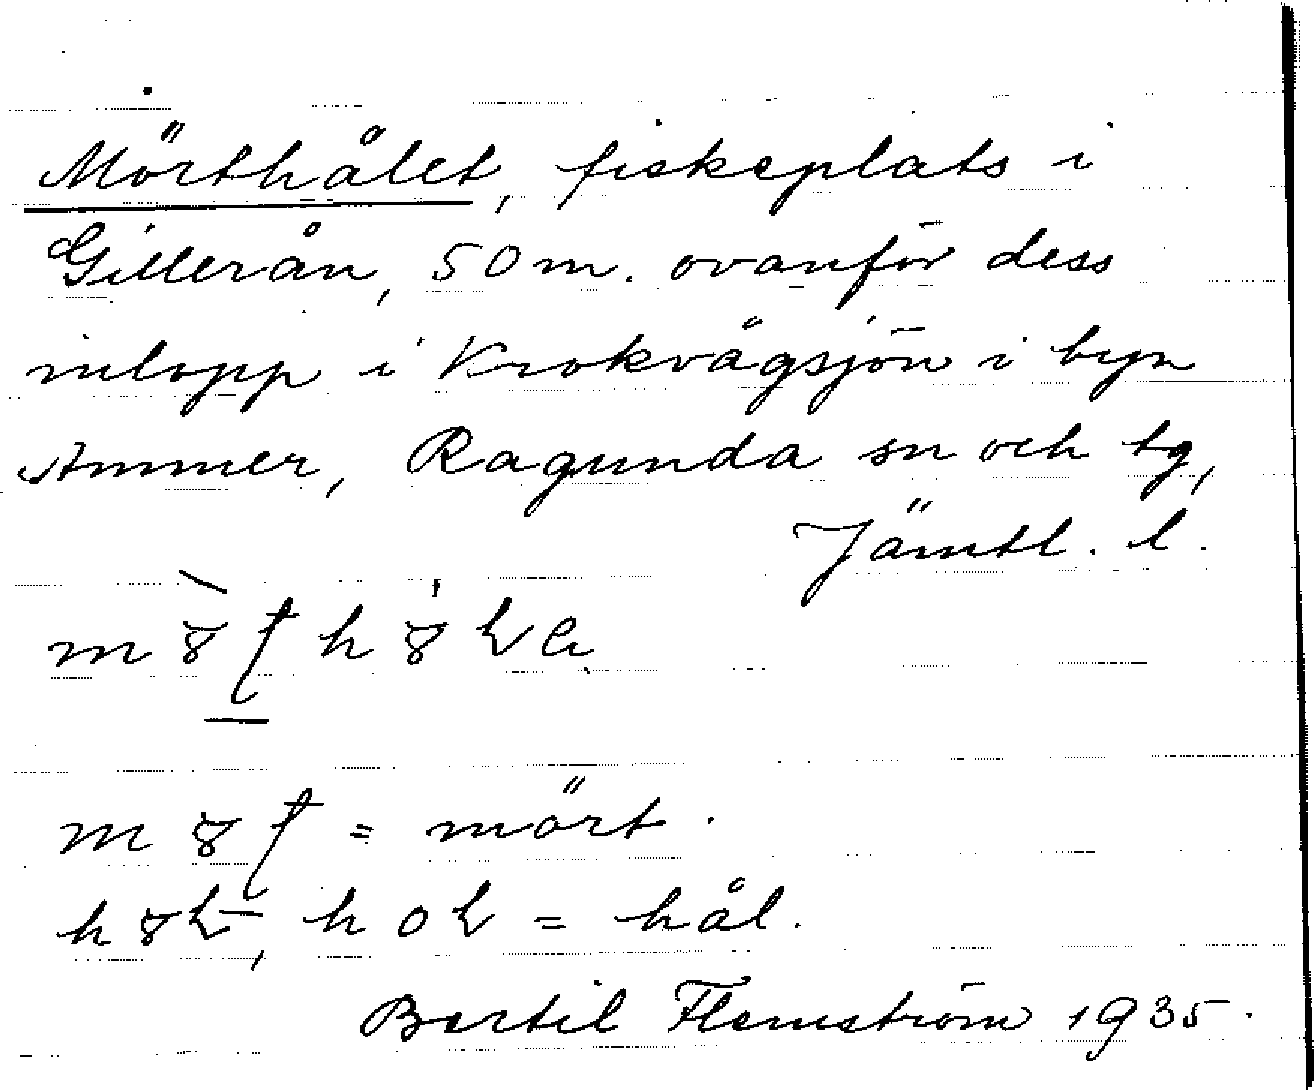 Mörthålet, fiskeplats i
Gillerån, 50 m. ovanför dess
inlopp i Krokvågsjön i byn
Ammer, Ragunda sn och tg,
Jämtl. l.
= mört.
= hål.
Bertil Flemström 1935.